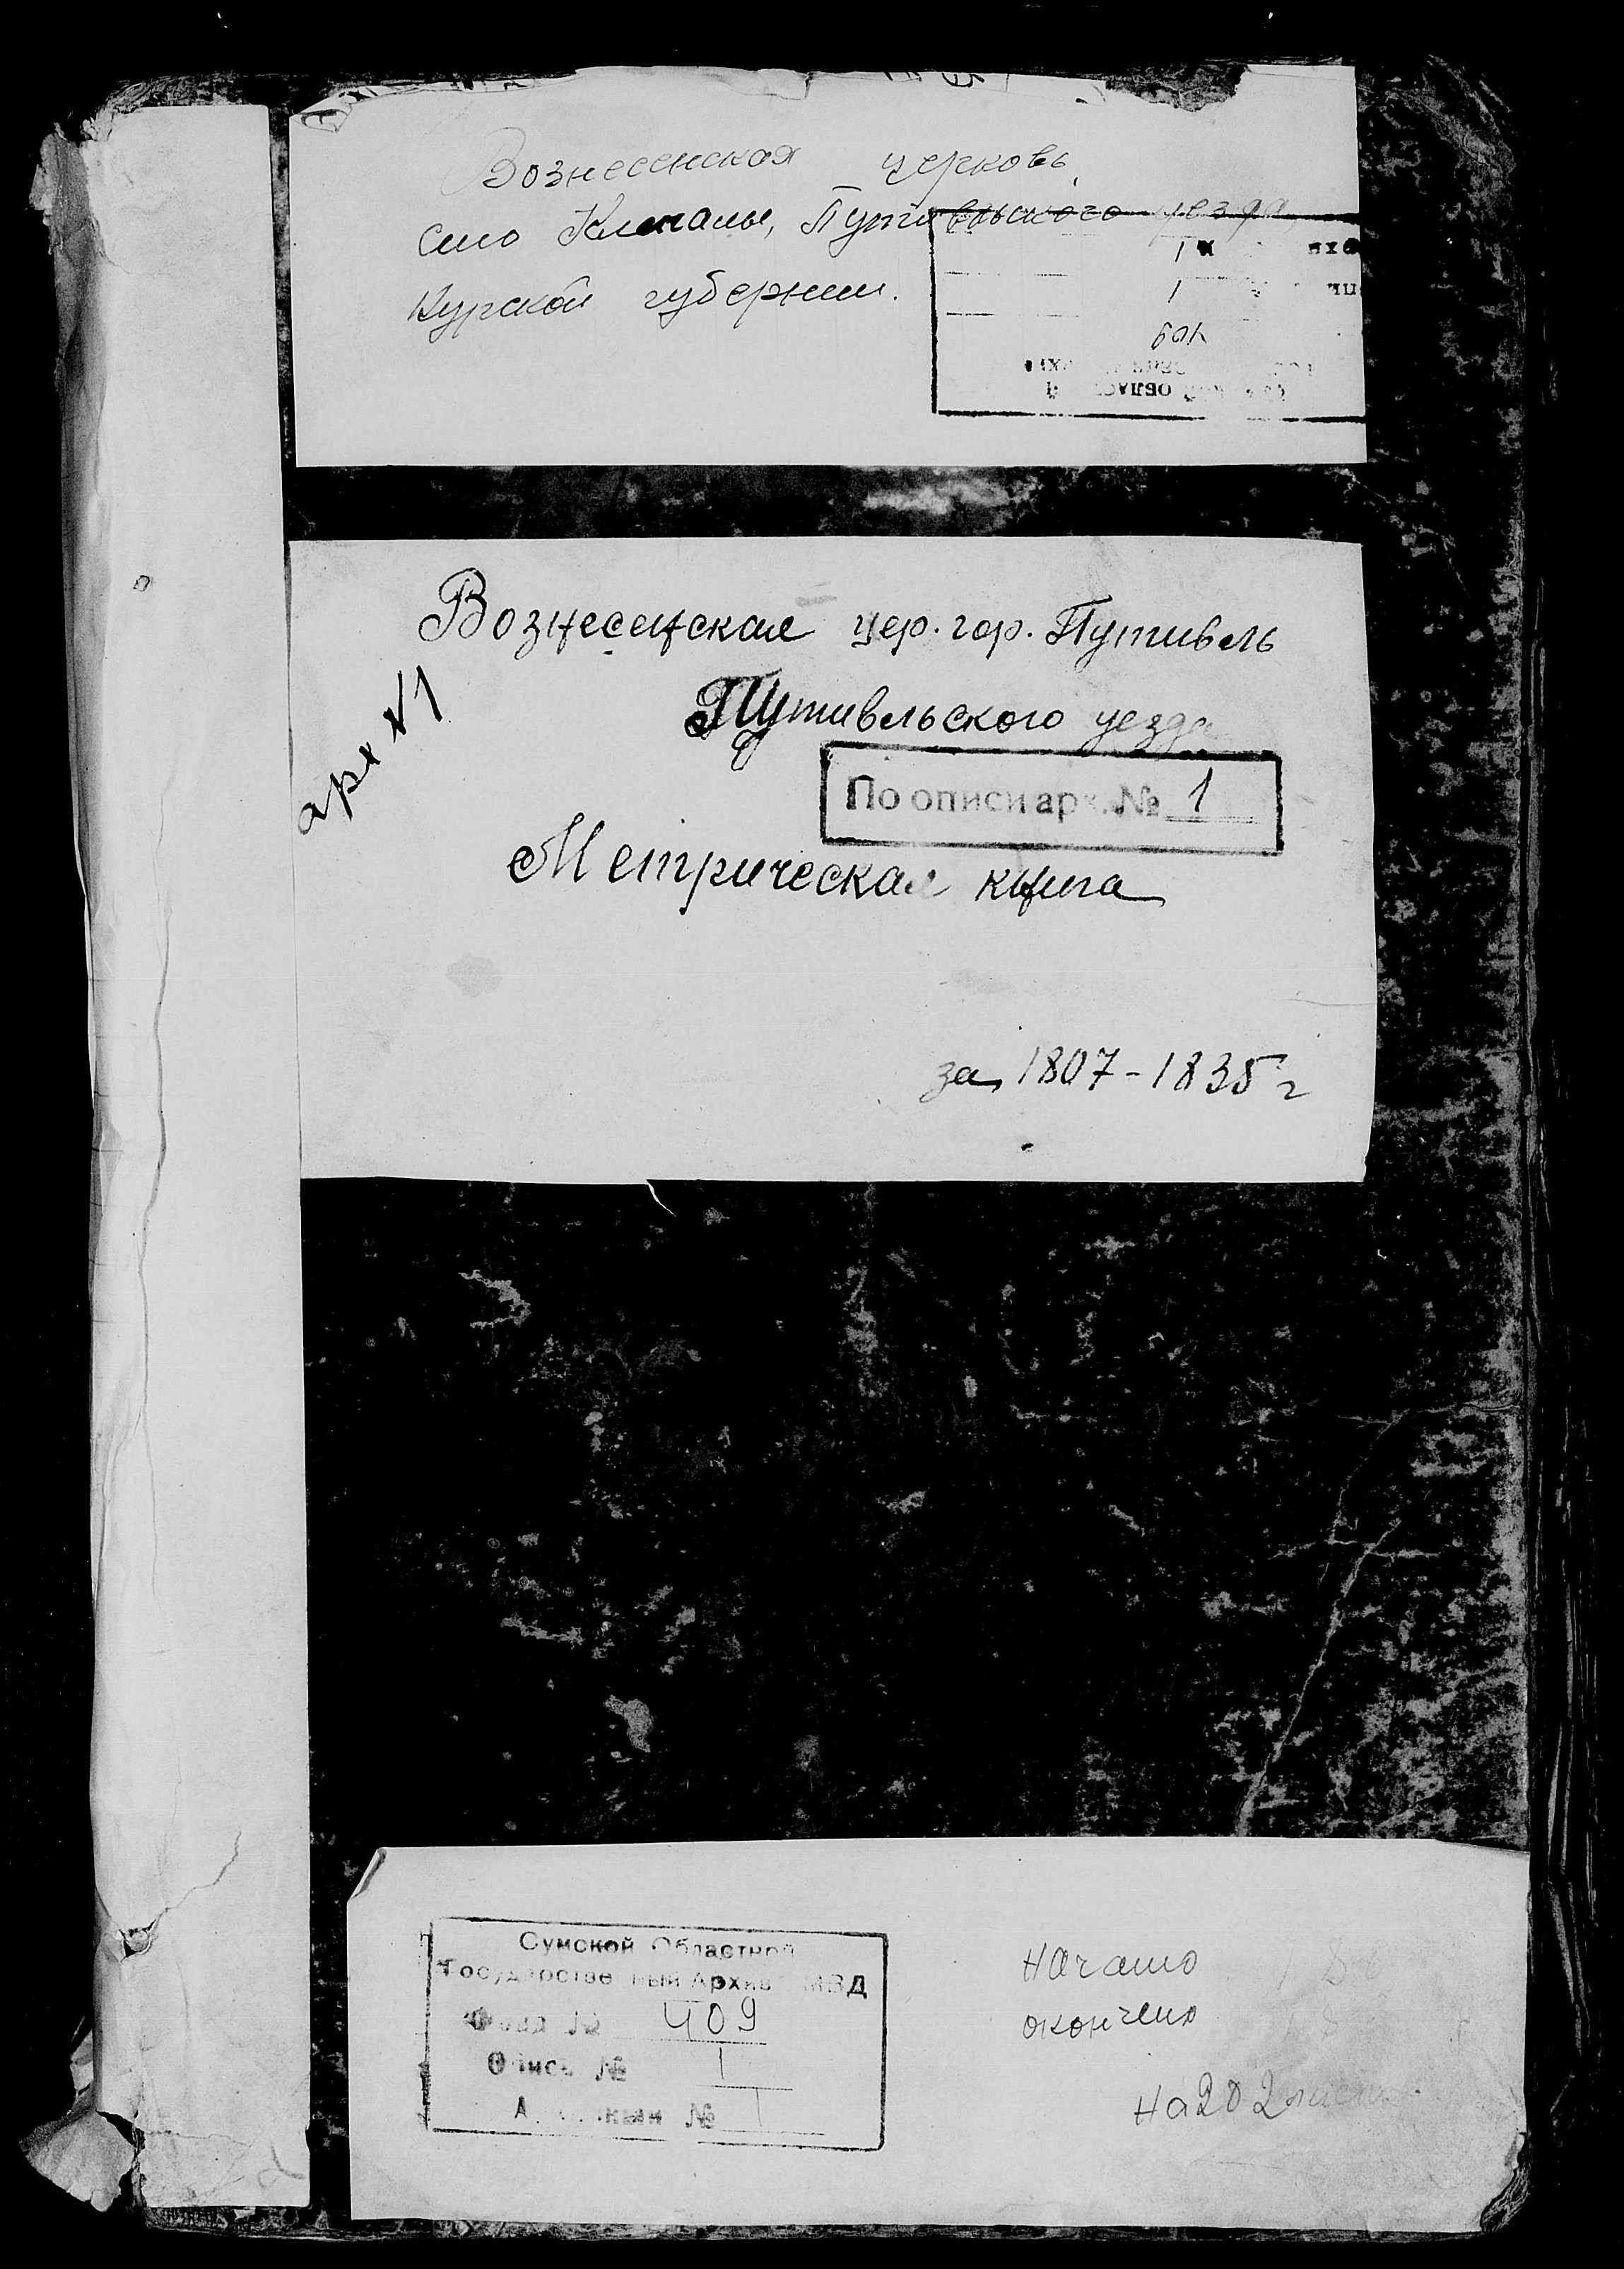 Вознесенская церковь
село Клепалы, Путивльского уезда
Курской губернии.
1
1
409
Вознесенская цер. гор. Путивль
Путивльского уезда
арх N1
По описи арх. № 1
Метрическая книга
за 1807-1835 г
Сумской Областной
Государственный Архив МВД
Фонд № 409
Опись № 1
№ 1
Начато
окончено
на 202 лист